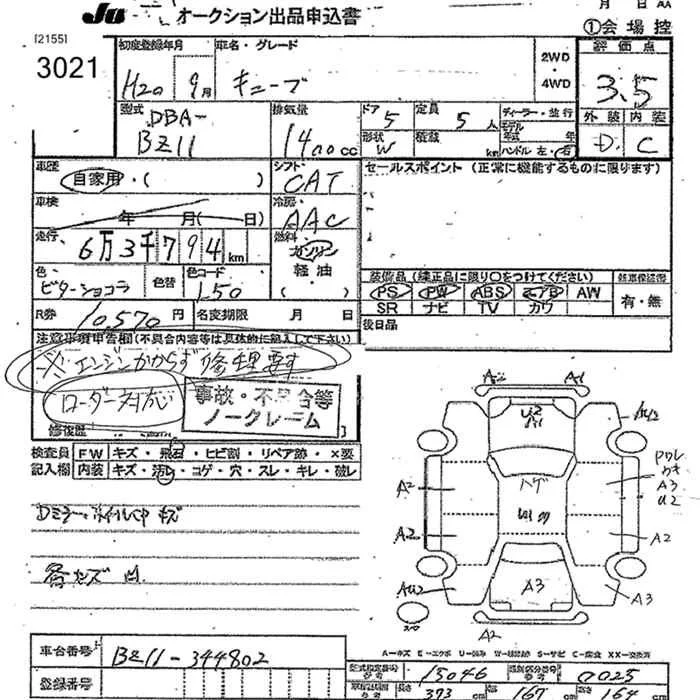 JU オークション出品申込書
月 日 AA
①会場控
[2155]
3021
初度登録年月
H20 9月
車名・グレード
キューブ
2WD
・
4WD
評価点
3.5
外装 内装
D C
型式
DBA-
BZ11
排気量
1400cc
ドア
5
定員
5人
形状
W
積載
km
ディーラー・並行
モデル
年式 年
ハンドル 左・右
車歴
自家用・( )
シフト
CAT
セールスポイント (正常に機能するものに限ります)
車検
年 月( 日)
冷房
AAC
走行
6万3千794km
燃料
ガソリン
軽油
( )
色
ビターショコラ
色替
色コード
L50
装備品 (純正品に限り○をつけてください)
PS PW ABS エアB AW
SR ナビ TV カワ
有・無
R券
10,570円
名変期限 月 日
後日品
注意事項申告欄(不具合内容等は具体的に記入して下さい)
※エンジンかからず修理要す
ローダー対応
事故・不具合等
ノークレーム
修復歴
検査員
記入欄
FW キズ・飛石・ヒビ割・リペア跡・×要
内装 キズ・汚レ・コゲ・穴・スレ・キレ・破レ
Dミラー、ホイルキャップ キズ
各キズ 凹
A2 A1
A2
A3
U2
A2
A2
ハゲ
A2
AU2
A3
A3
A2
A-キズ E-エクボ U-凹み W-補修跡 S-サビ C-腐食 XX-交換済
車台番号
BZ11-344802
登録番号
型式指定番号
15046
類別区分番号
0025
長さ 373cm
幅 167cm
高さ 164cm